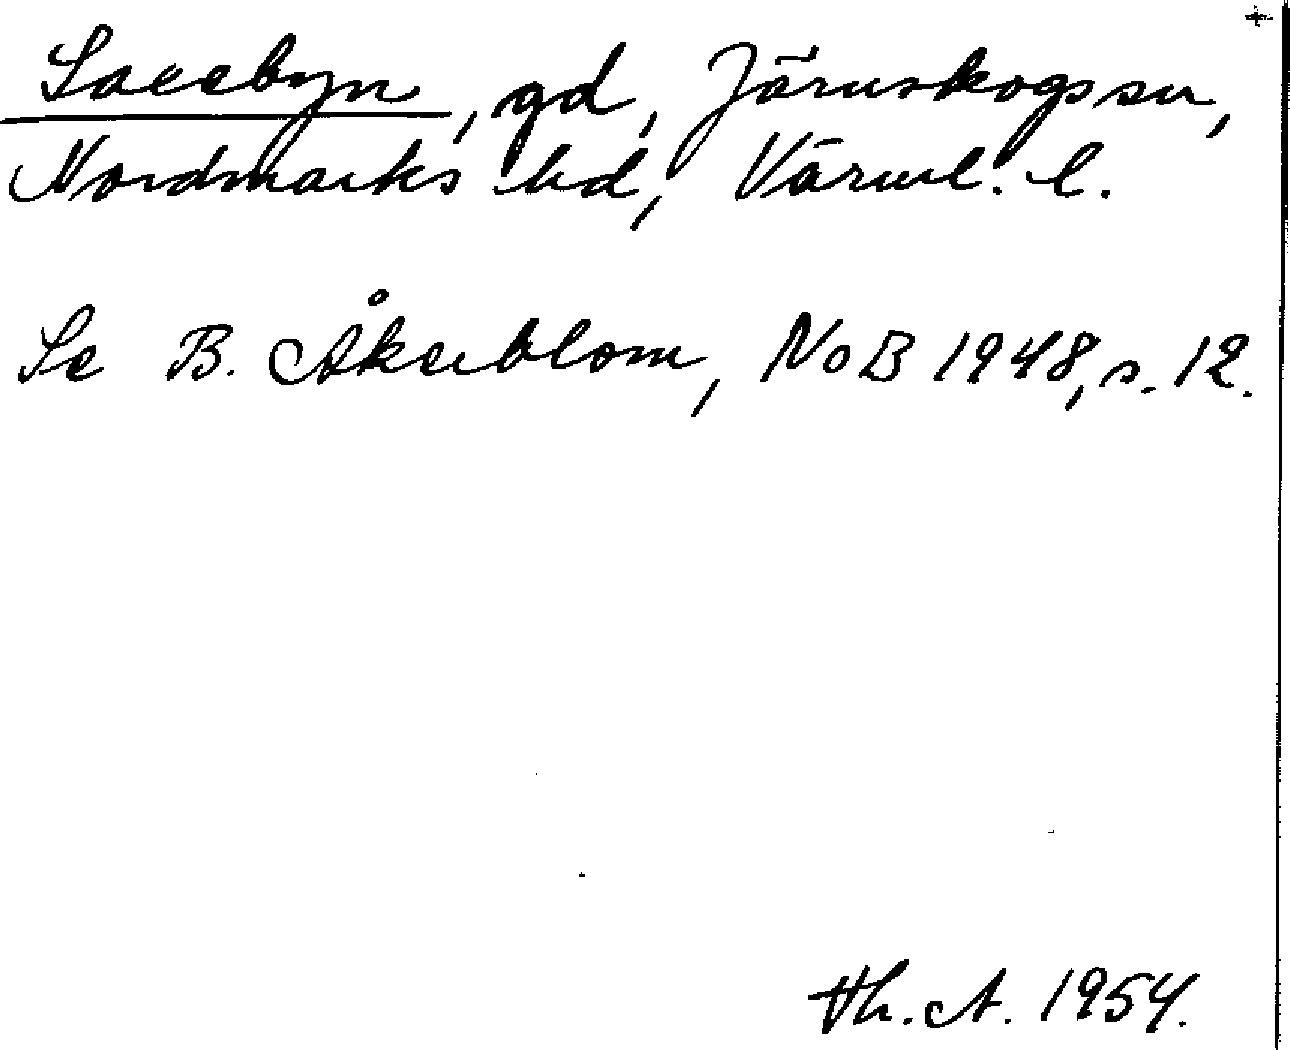 Saeebyn, gd, Järnskogs sn,
Nordmarks hd, Värml. l.
Se B. Åkerblom, NoB 1948, s. 12.
Th. A. 1954.